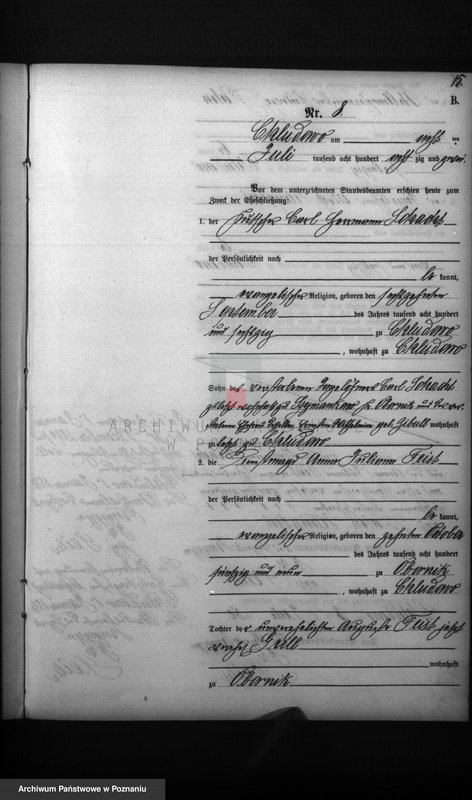 15.
B.
Nr. 8.
Chludowo am acht ten
Juli tausend acht hundert acht zig und zwei
Vor dem unterzeichneten Standesbeamten erschien heute zum
Zweck der Eheschließung:
1. der Kutscher Carl Herrmann Schacht
der Persönlichkeit nach
be kannt,
evangelischer Religion, geboren den sechszehnten
September des Jahres tausend acht hundert
und sechszig zu Chludowo
, wohnhaft zu Chludowo
Sohn des verstorbenen Tagelöhners Carl Schacht
zuletzt wohnhaft zu bei Obornik und der
geb. wohnhaft
zuletzt zu Chludowo
2. die Dienstmagd Anna Juliane Feist
der Persönlichkeit nach
be kannt,
evangelischer Religion, geboren den zehnten October
des Jahres tausend acht hundert
fünfzig und neun zu Obornik
, wohnhaft zu Chludowo
Tochter der unverehelichten Auguste Feist jetzt
verehel.
wohnhaft
zu Obornik
ARCHIWUM
W P
Archiwum Państwowe w Poznaniu